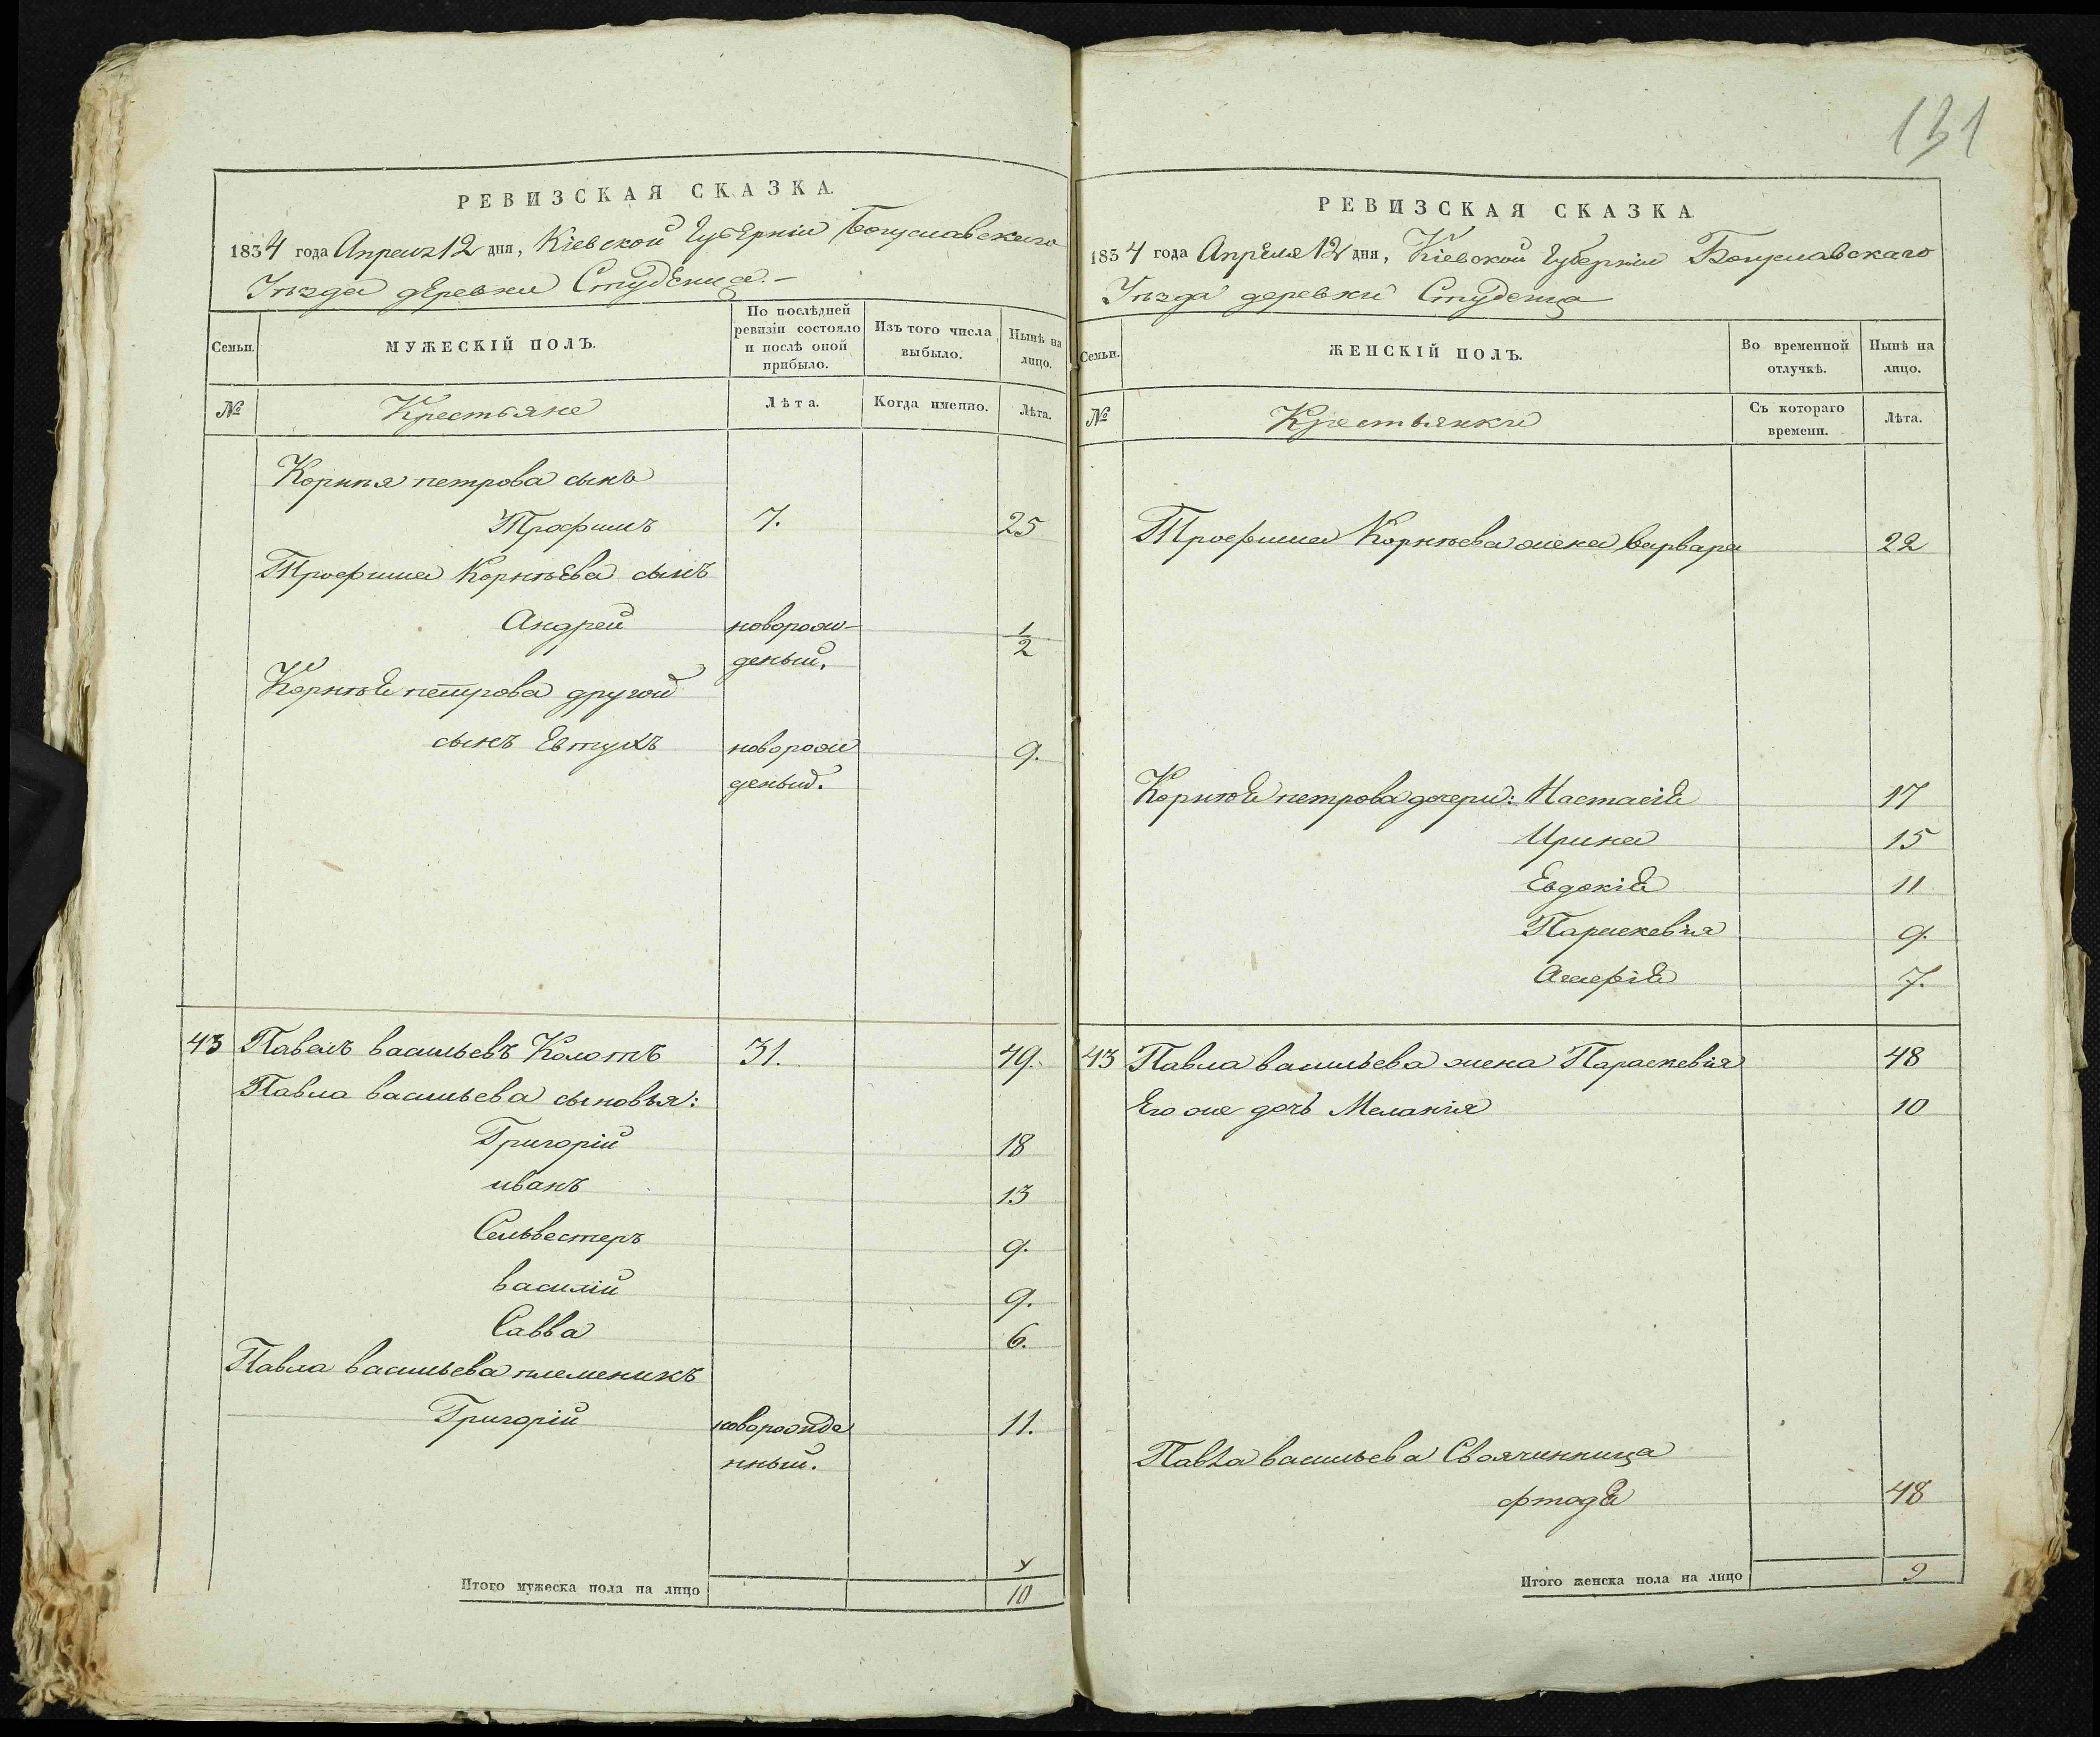 131
РЕВИЗСКАЯ СКАЗКА.
1834 года Апреля 12 дня, Кіевской Губерніи Богуславскаго
Уѣзда деревни Студенца.
Семьи.
МУЖЕСКІЙ ПОЛЪ.
По послѣдней
ревизіи состояло
и послѣ оной
прибыло.
Изъ того числа
выбыло.
Нынѣ на
лицо.
№
Крестьяне
Лѣта.
Когда именно.
Лѣта.
Корнѣя петрова сынъ
Трофимъ 7. 25
Трофима Корнѣева сынъ
Андрей новорож- 1/2
деный.
Корнѣя петрова другой
сынъ Евтухъ новорож 9.
деный.
43 Павелъ васильевъ Колотъ 31. 49.
Павла васильева сыновья:
Григорій 18
иванъ 13
Сельвестеръ 9.
василій 9.
Савва 6.
Павла васильева племеникъ
Григорій новорожде 11.
нный.
Итого мужеска пола на лицо 10
РЕВИЗСКАЯ СКАЗКА
1834 года Апрѣля 12 дня, Кіевской Губерніи Богуславскаго
Уѣзда деревни Студенца
Семьи.
ЖЕНСКІЙ ПОЛЪ.
Во временной
отлучкѣ.
Нынѣ на
лицо.
№
Крестьянки
Съ котораго
времени.
Лѣта.
Трофима Корнѣева жена варвара 22
Корнѣя петрова дочери: Настасія 17
Ирина 15
Евдокія 11
Параскевія 9.
7.
43 Павла васильева жена Параскевія 48
Его же дочь Меланія 10
Павла васильева Своячинница
48
Итого женска пола на лицо 9